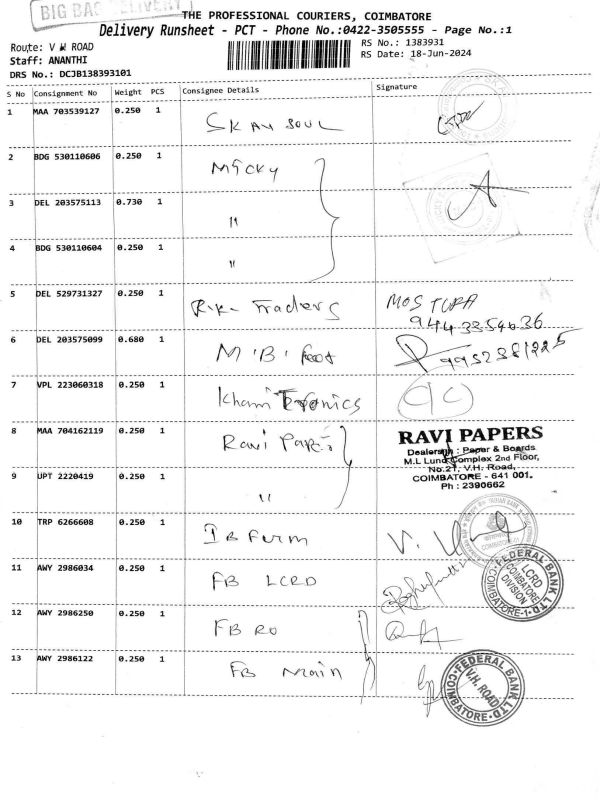 BIG BAG DELIVERY
THE PROFESSIONAL COURIERS, COIMBATORE
Delivery Runsheet - PCT - Phone No.:0422-3505555 - Page No.:1
Route: V H ROAD
RS No.: 1383931
Staff: ANANTHI
RS Date: 18-Jun-2024
DRS No.: DCJB138393101
S No Consignment No Weight PCS Consignee Details Signature
1 MAA 703539127 0.250 1 SKAN SOUL
2 BDG 530110606 0.250 1 Micky
3 DEL 203575113 0.730 1 "
4 BDG 530110604 0.250 1 "
5 DEL 529731327 0.250 1 Traders MOSTUFA
9443354636
6 DEL 203575099 0.680 1 M 'B' foot 9952381225
7 VPL 223060318 0.250 1
8 MAA 704162119 0.250 1 Ravi Paper
RAVI PAPERS
Dealers in : Paper & Boards
M.L Lund Complex 2nd Floor,
No.21, V.H. Road,
COIMBATORE - 641 001.
Ph : 2390662
9 UPT 2220419 0.250 1 "
10 TRP 6266608 0.250 1 IB Furm
11 AWY 2986034 0.250 1 FB LCRD
FEDERAL BANK LTD.
LCRD
COIMBATORE
DIVISION
COIMBATORE-1
12 AWY 2986250 0.250 1 FB RO
13 AWY 2986122 0.250 1 FB Main
FEDERAL BANK LTD
V.H. ROAD
COIMBATORE